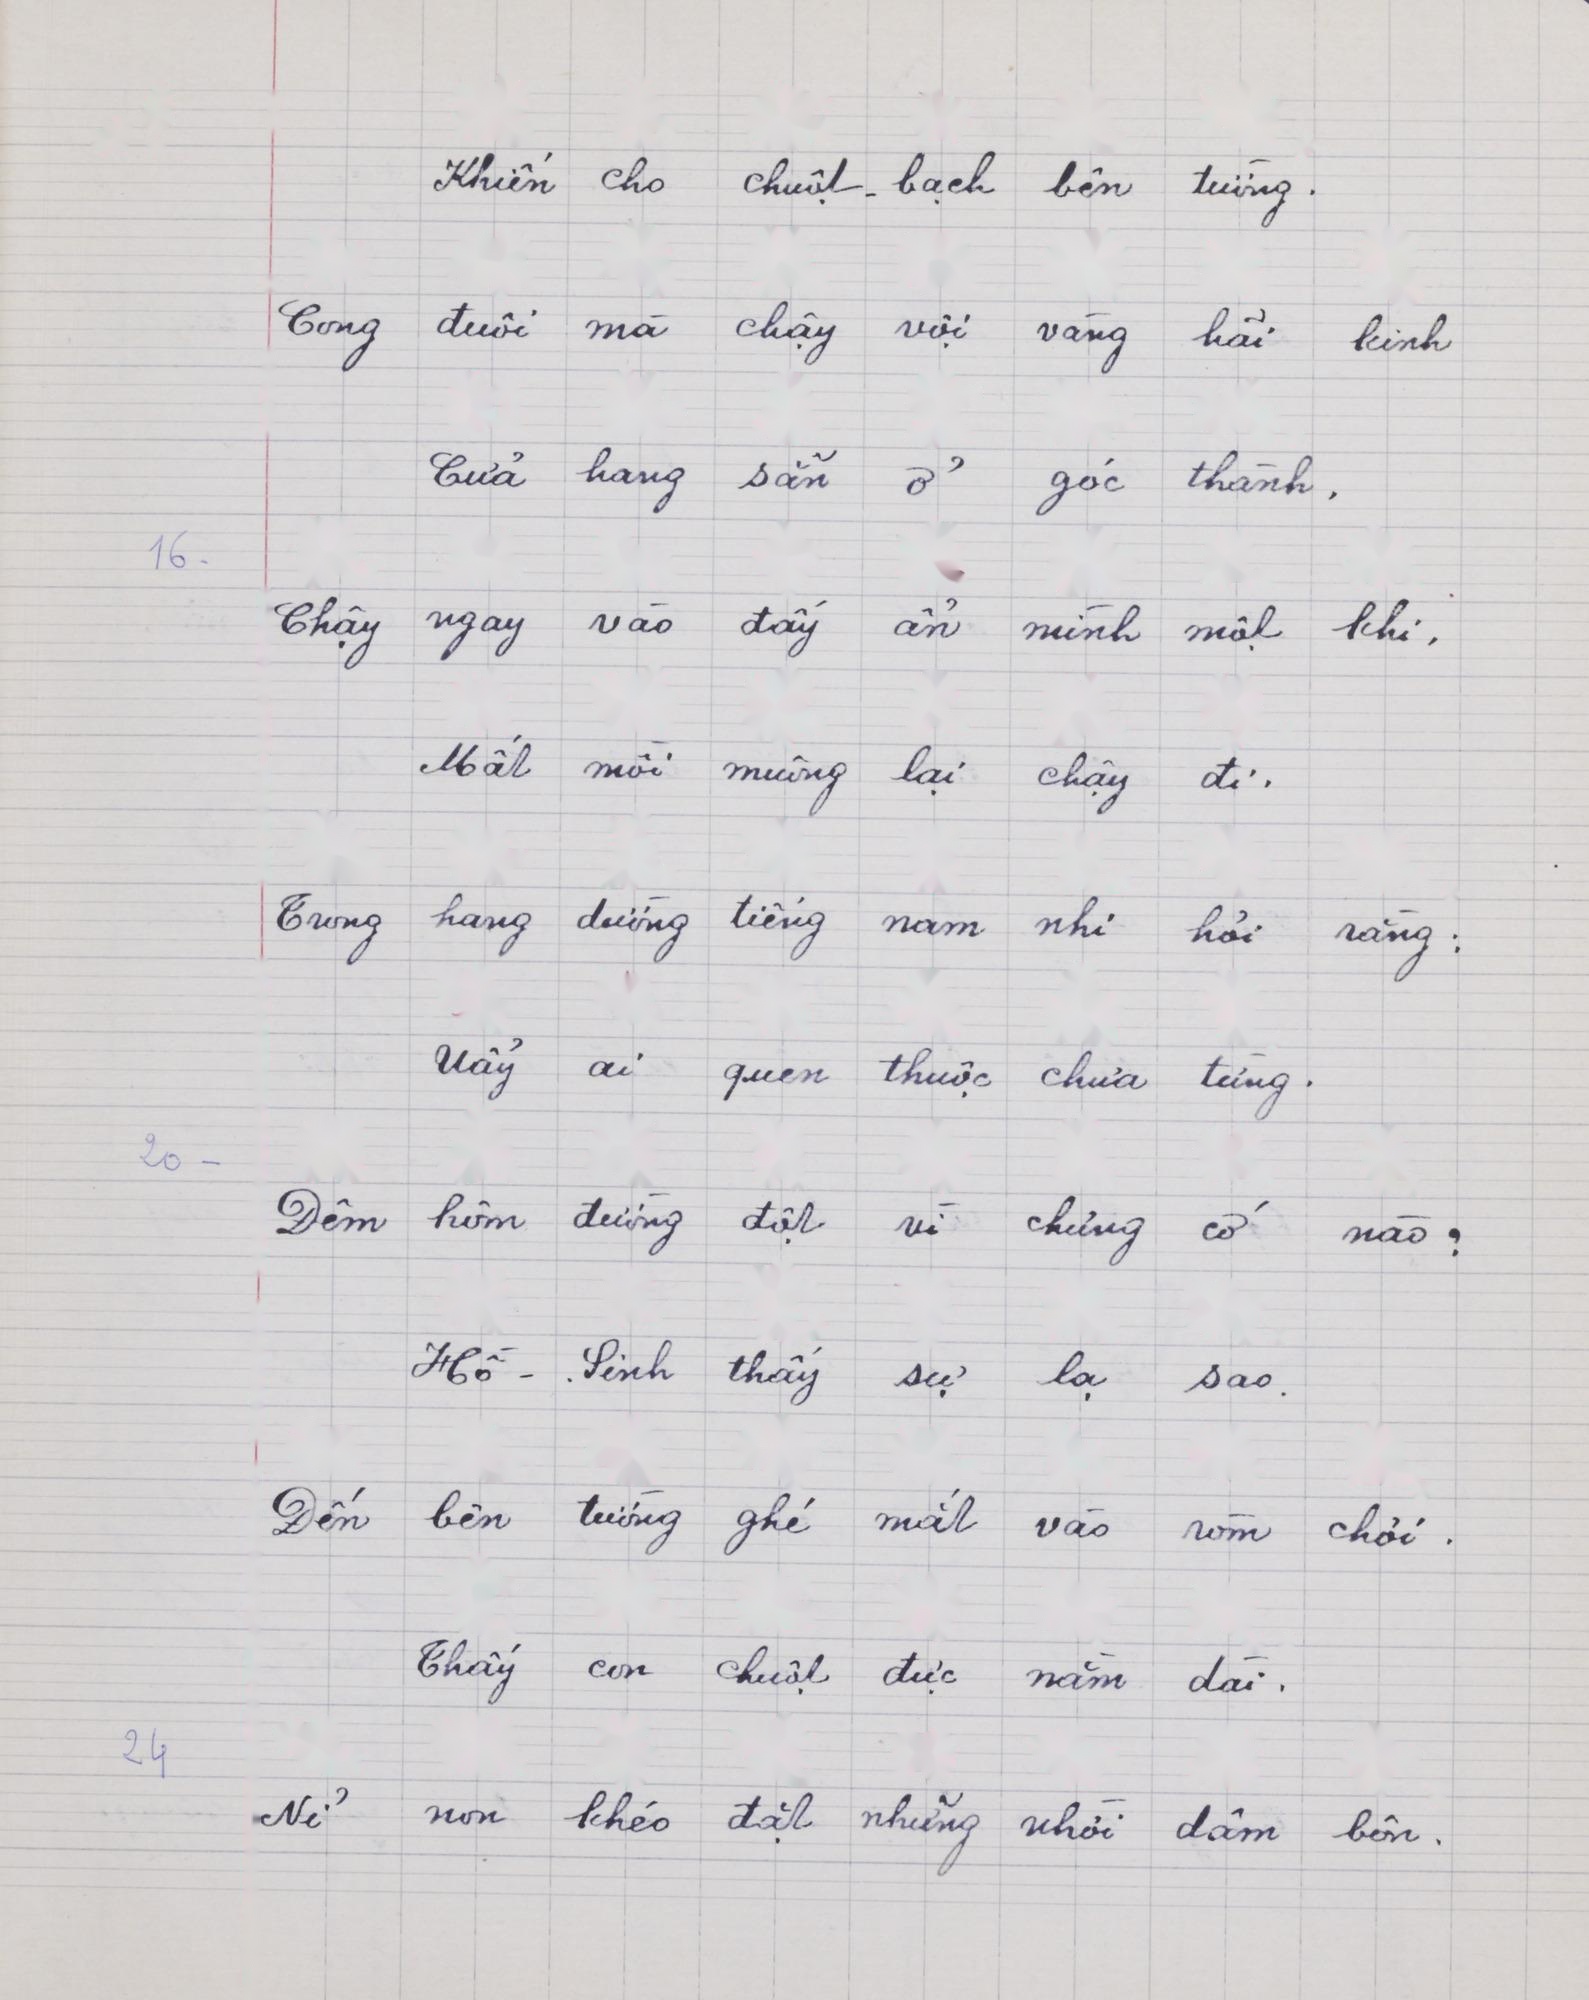 Khiến cho chuột-bạch bên tường.
Cong đuôi mà chậy vội vàng hãi kinh
Cửa hang sẵn ở góc thành,
16.
Chậy ngay vào đấy ẩn mình một khi,
Mất mồi muông lại chậy đi.
Trong hang dường tiếng nam nhi hỏi rằng:
Uẩy ai quen thuộc chưa từng.
20 -
Đêm hôm đường đột vì chưng cớ nào?
Hồ-Sinh thấy sự lạ sao.
Đến bên tường ghé mắt vào ròm chơi.
Thấy con chuột đực nằm dài.
24
Nỉ non khéo đặt những nhời dâm bôn.